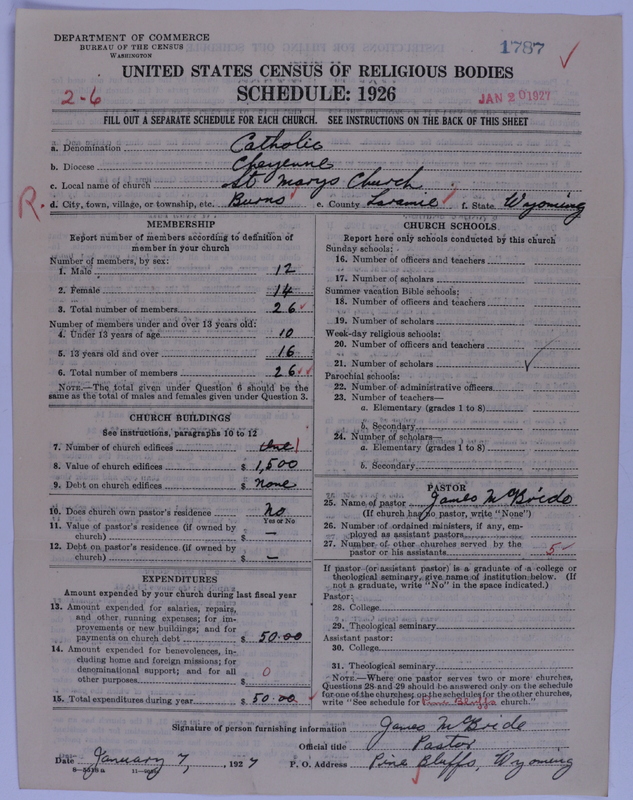 DEPARTMENT OF COMMERCE
BUREAU OF THE CENSUS
WASHINGTON
1787
UNITED STATES CENSUS OF RELIGIOUS BODIES
SCHEDULE: 1926
2-6
JAN 20 1927
FILL OUT A SEPARATE SCHEDULE FOR EACH CHURCH. SEE INSTRUCTIONS ON THE BACK OF THIS SHEET
a. Denomination Catholic
b. Diocese Cheyenne
c. Local name of church St Marys Church
R.
d. City, town, village, or township, etc. Burns e. County Laramie f. State Wyoming
MEMBERSHIP
Report number of members according to definition of
member in your church
Number of members, by sex:
1. Male 12
2. Female 14
3. Total number of members 26
Number of members under and over 13 years old:
4. Under 13 years of age 10
5. 13 years old and over 16
6. Total number of members 26
NOTE.—The total given under Question 6 should be the
same as the total of males and females given under Question 3.
CHURCH BUILDINGS
See instructions, paragraphs 10 to 12
7. Number of church edifices one 1
8. Value of church edifices $ 1,500
9. Debt on church edifices $ none
10. Does church own pastor's residence No
Yes or No
11. Value of pastor's residence (if owned by
church) $ —
12. Debt on pastor's residence (if owned by
church) $ —
EXPENDITURES
Amount expended by your church during last fiscal year
13. Amount expended for salaries, repairs,
and other running expenses; for im-
provements or new buildings; and for
payments on church debt $ 50.00
14. Amount expended for benevolences, in-
cluding home and foreign missions; for
denominational support; and for all
other purposes $ 0
15. Total expenditures during year $ 50.00
CHURCH SCHOOLS
Report here only schools conducted by this church
Sunday schools:
16. Number of officers and teachers
17. Number of scholars
Summer vacation Bible schools:
18. Number of officers and teachers
19. Number of scholars
Week-day religious schools:
20. Number of officers and teachers
21. Number of scholars
Parochial schools:
22. Number of administrative officers
23. Number of teachers—
a. Elementary (grades 1 to 8)
b. Secondary
24. Number of scholars—
a. Elementary (grades 1 to 8)
b. Secondary
PASTOR
25. Name of pastor James McBride
(If church has no pastor, write "None")
26. Number of ordained ministers, if any, em-
ployed as assistant pastors
27. Number of other churches served by the
pastor or his assistants 5
If pastor (or assistant pastor) is a graduate of a college or
theological seminary, give name of institution below. (If
not a graduate, write "No" in the space indicated.)
Pastor:
28. College
29. Theological seminary
Assistant pastor:
30. College
31. Theological seminary
NOTE.—Where one pastor serves two or more churches,
Questions 28 and 29 should be answered only on the schedule
for one of the churches; on the schedules for the other churches,
write "See schedule for Pine Bluffs church."
Signature of person furnishing information James McBride
Official title Pastor
Date January 7, 1927 P. O. Address Pine Bluffs, Wyoming